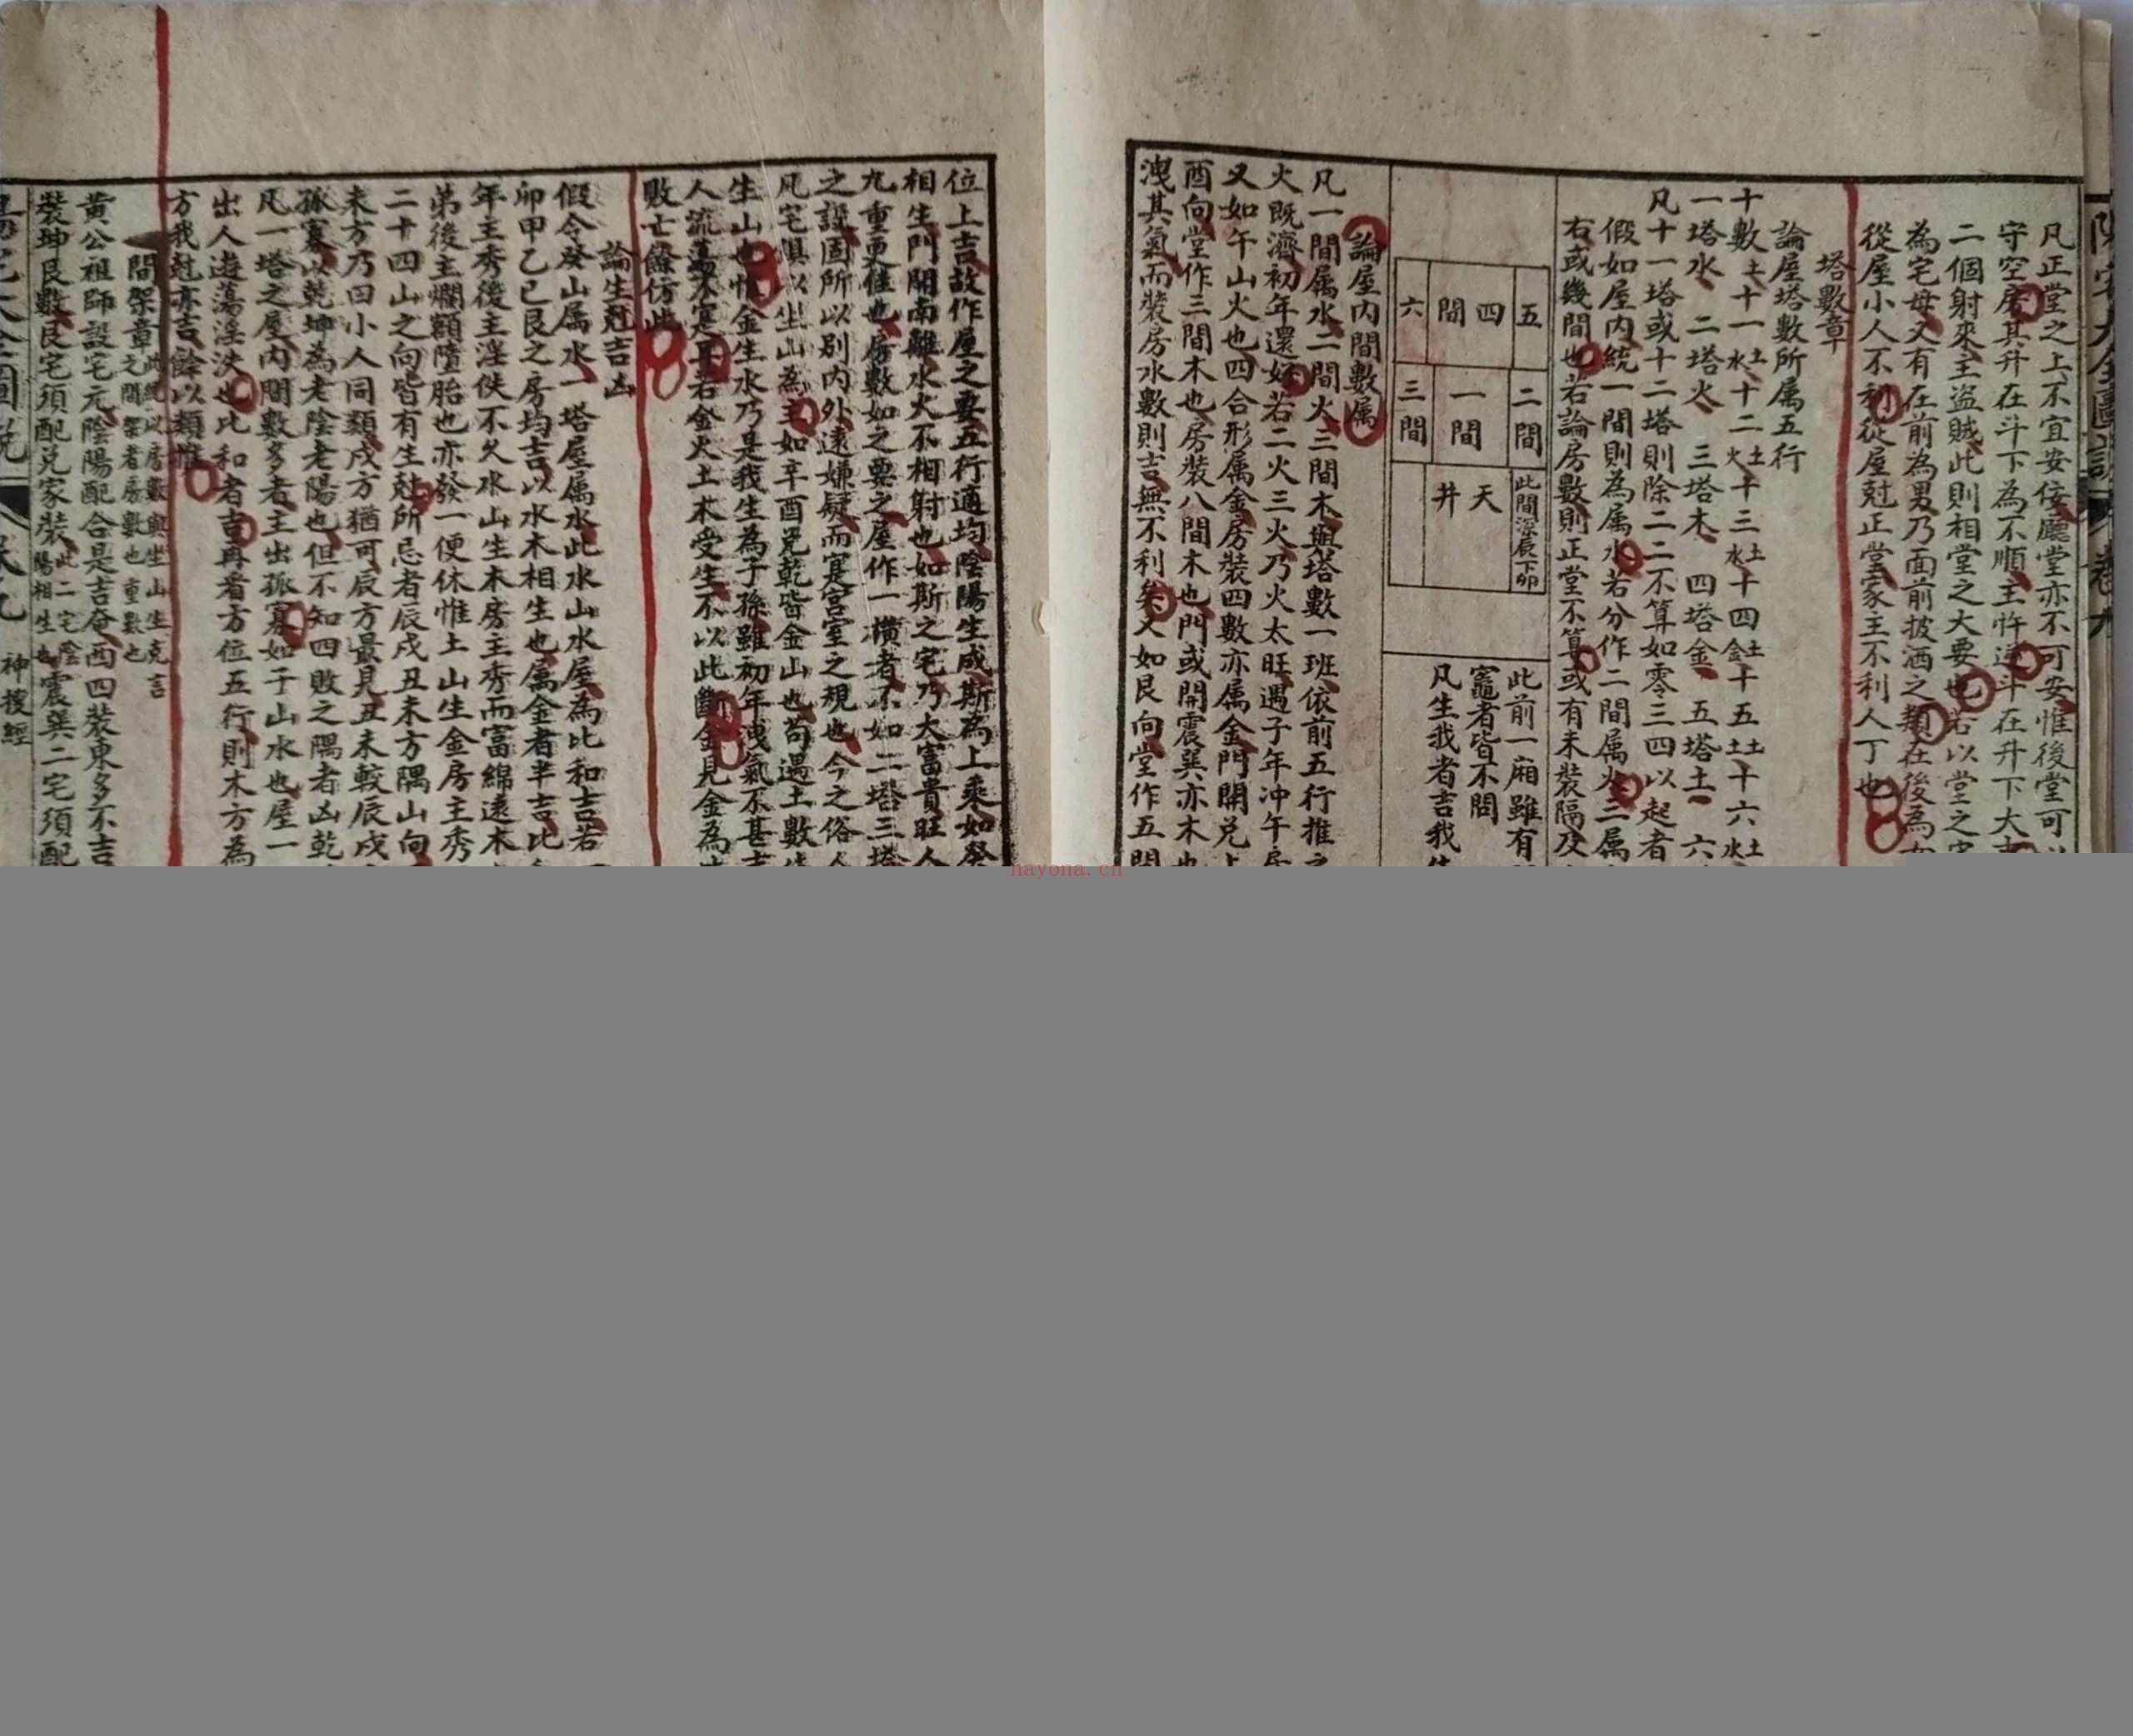 凡正堂之上不宜安俀廳堂亦不可安惟後堂可
守空房其升在斗下為不順主忤逆斗在升下大
二個射來主盜賊此則相堂之大要也若以堂之
為宅母又有在前為男乃面前披洒之類在後為
從屋小人不利從屋尅正堂家主不利人丁也
塔數章
論屋塔數所属五行
十數土十一水土十二火土十三水土十四金土十五土土十六水土
一塔水 二塔火 三塔木 四塔金 五塔土 六
凡十一塔或十二塔則除二二不算如零三四以起者
假如屋内統一間則為属水若分作二間属火三属
右或幾間也若論房數則正堂不算或有未裝隔及
五 四間 六
二間 一間 三間
此間深辰下卯
天井
此前一廂雖有
竈者皆不問
凡生我者吉我
論屋内間數属
凡一間属水二間火三間木與塔數一班依前五行推
火既濟初年還好若二火三火乃火太旺遇子年冲午
又如午山火也四合形属金房裝四數亦属金門開兑
酉向堂作三間木也房裝八間木也門或開震巽亦木也
洩其氣而裝房水數則吉無不利矣又如艮向堂作五間
位上吉故作屋之要五行適均陰陽生成斯為上乘如癸
相生門開南離水火不相射也如斯之宅乃大富貴旺人
九重更佳也房數如之要之屋作一横者不如二塔三塔
之設固所以别内外遠嫌疑而寔宮室之規也今之俗
凡宅俱以坐山為主如辛酉兑乾皆金山也苟遇土數
生山也惟金生水乃是我生為子孫雖初年洩氣不甚
人流蕩不寔且若金火土木受生不以此斷金見金為
敗亡餘仿此
論生尅吉凶
假令癸山属水一塔屋属水此水山水屋為比和吉若
卯甲乙巳艮之房均吉以水木相生也属金者半吉比
年主秀後主淫佚不久水山生木房主秀而富綿遠木
弟後主爛顙墮胎也亦發一便休惟土山生金房主秀
二十四山之向皆有生尅所忌者辰戌丑未方隅山向
未方乃曰小人同類戌方猶可辰方最見丑未較辰戌
孤寡以乾坤為老陰老陽也但不知四敗之隅者凶乾
凡一塔之屋内間數多者主出孤寡如子山水也屋一
出人遊蕩淫泆也比和者吉再看方位五行則木方為
方我尅亦吉餘以類推
間架章此純以房數與坐山生克言之間架者房數也重數也
黄公祖師設宅元陰陽配合是吉奄西四裝東多不吉
裝坤艮數艮宅須配兑家裝此二宅陰陽相生也震巽二宅須配
神搜經